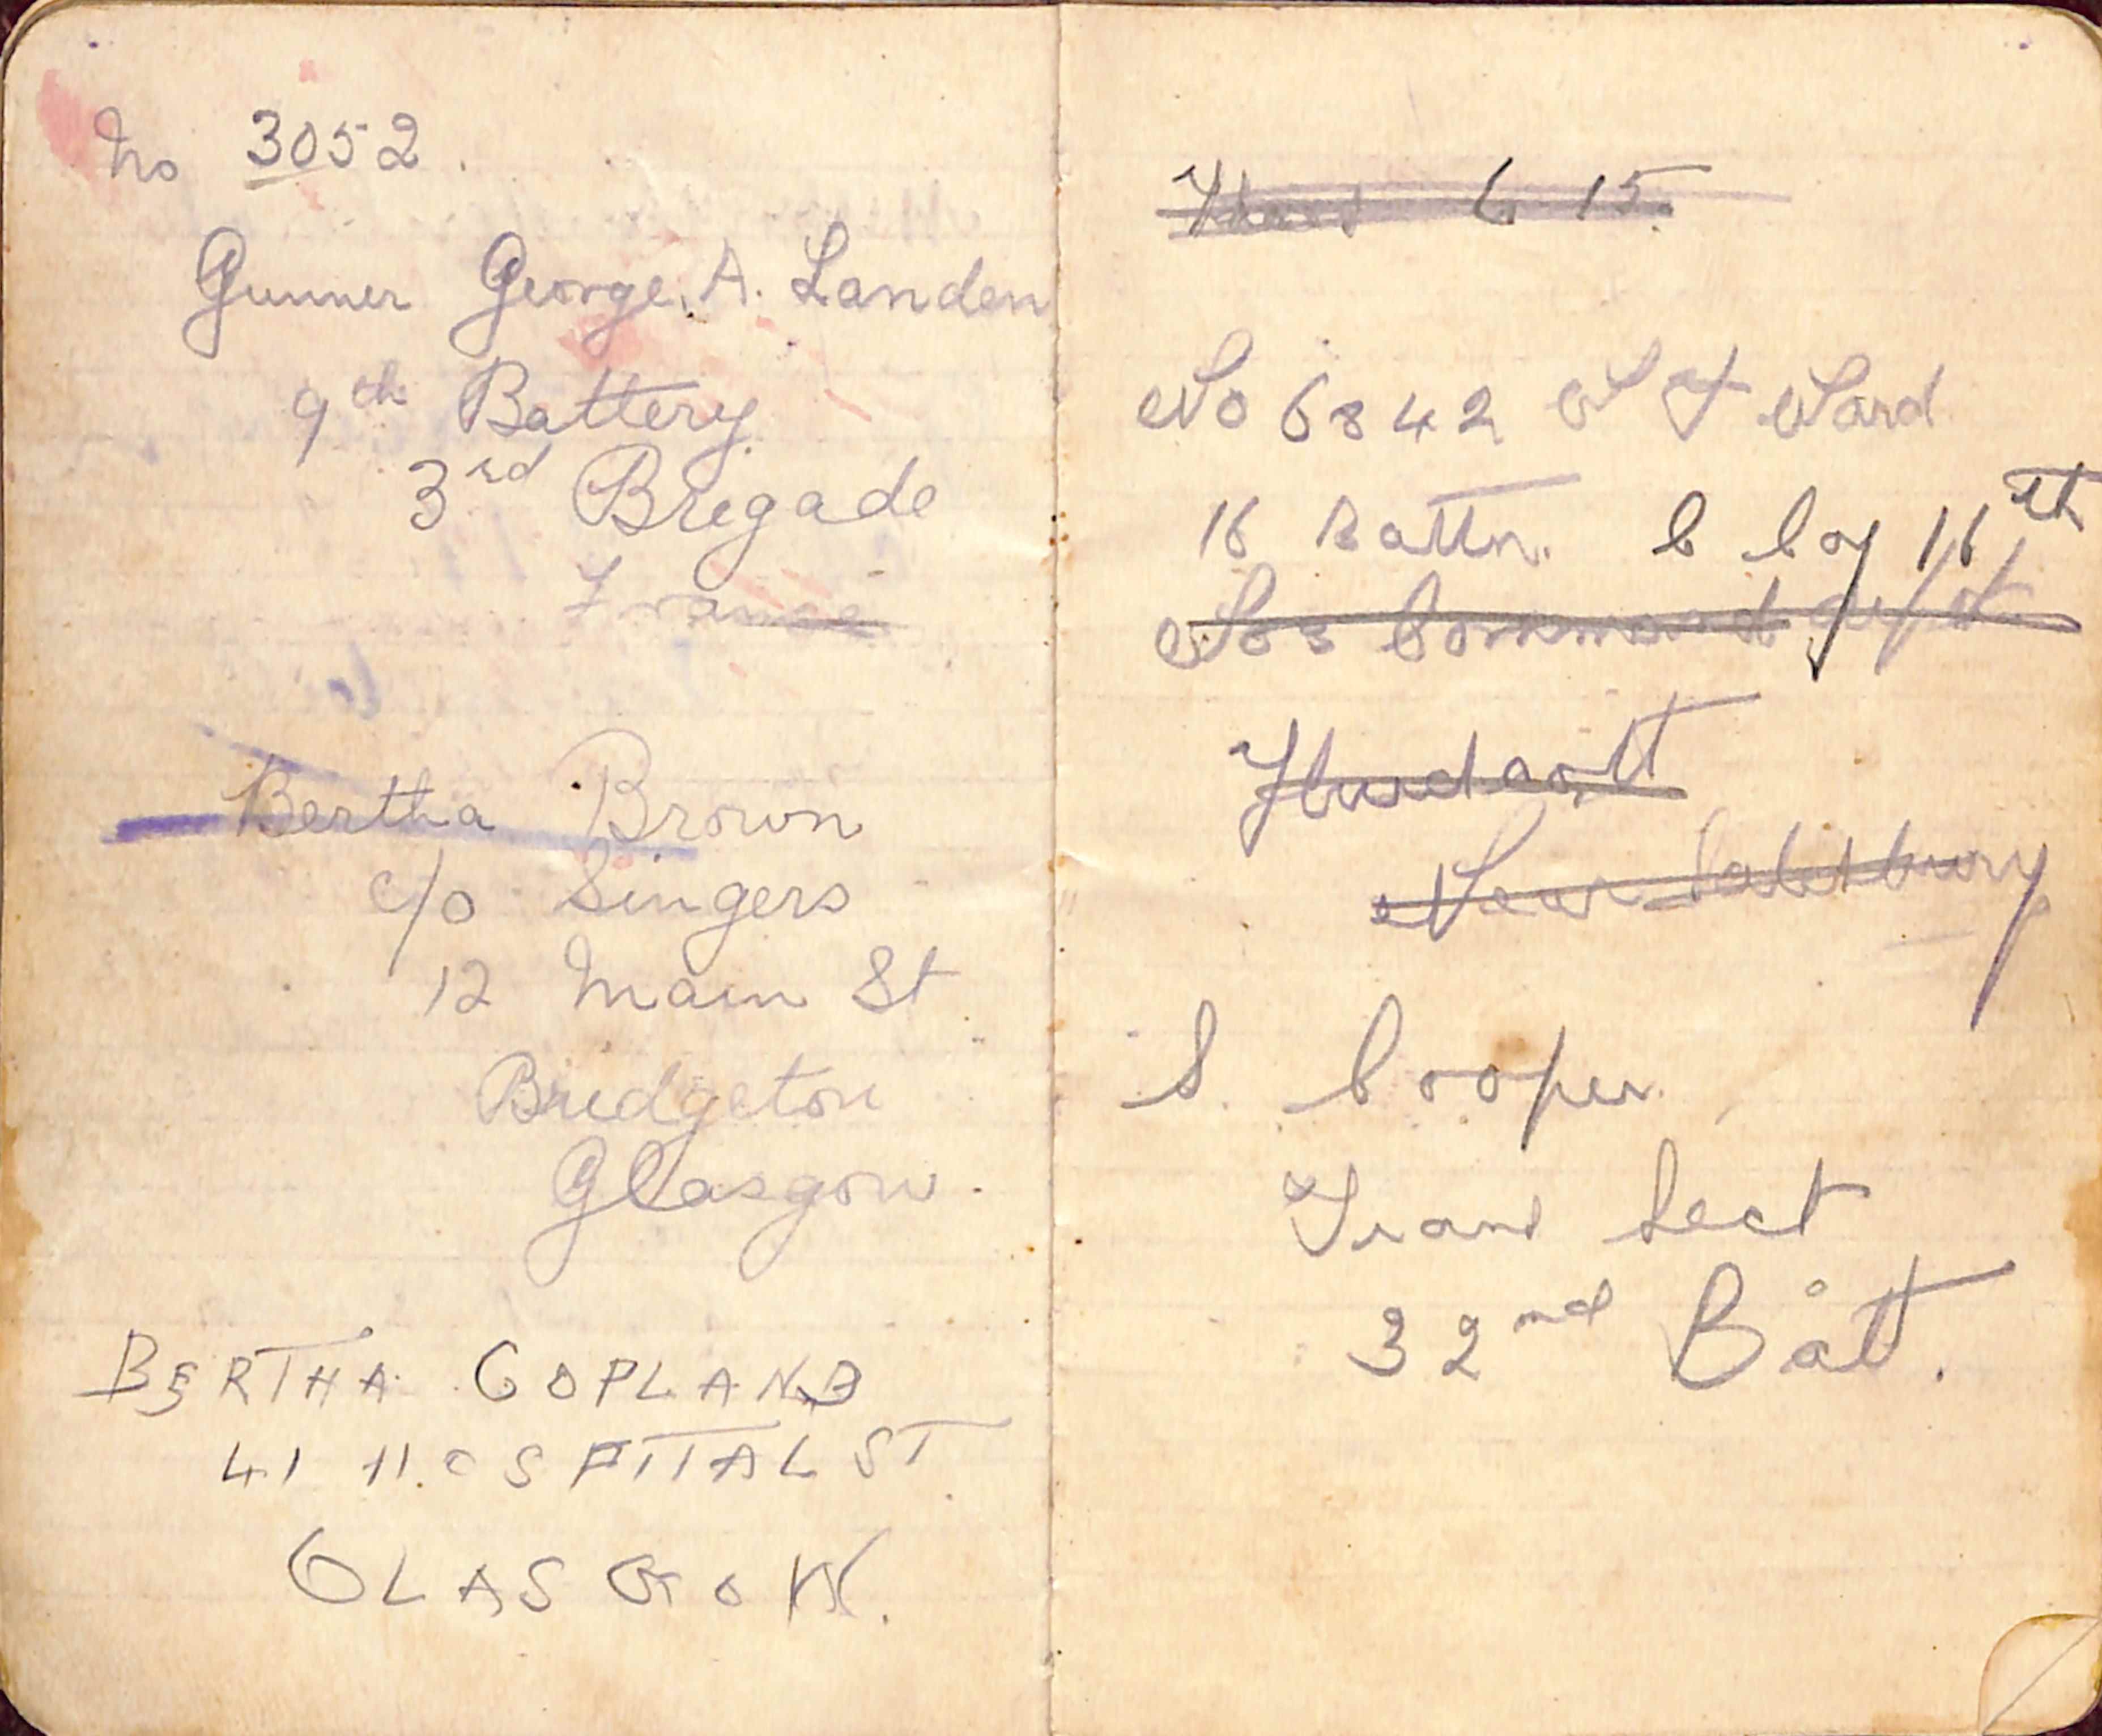 No 3052.
Gunner George. A. Landen
9th Battery
3rd Bregade
France
Bertha Brown
c/o Singers
12 Main St
Bridgeton
Glasgow.
BERTHA COPLAND
41 HOSPITAL ST
GLASGOW.
6 15.
No 6842
16 Battn. C Coy 16th
No 3 Command
Hurdcott
Near Salisbury
S. Cooper
Trans Sect
32nd Batt.